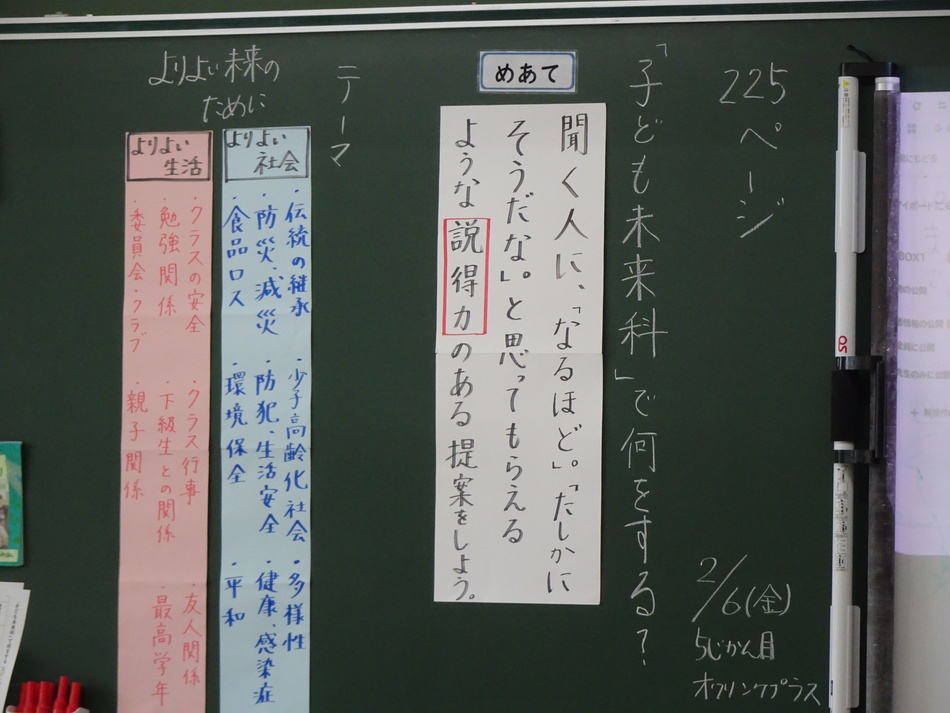 225ページ
「子ども未来科」で何をする?
2/6(金)
5じかん目
オクリンクプラス
めあて
聞く人に、「なるほど」。「たしかに
そうだな」。と思ってもらえる
ような説得力のある提案をしよう。
テーマ
よりよい未来の
ために
よりよい
社会
・伝統の継承
・少子高齢化社会
・多様性
・防災、減災
・防犯、生活安全
・健康、感染症
・食品ロス
・環境保全
・平和
よりよい
生活
・クラスの安全
・クラス行事
・友人関係
・勉強関係
・下級生との関係
・最高学年
・委員会・クラブ
・親子関係